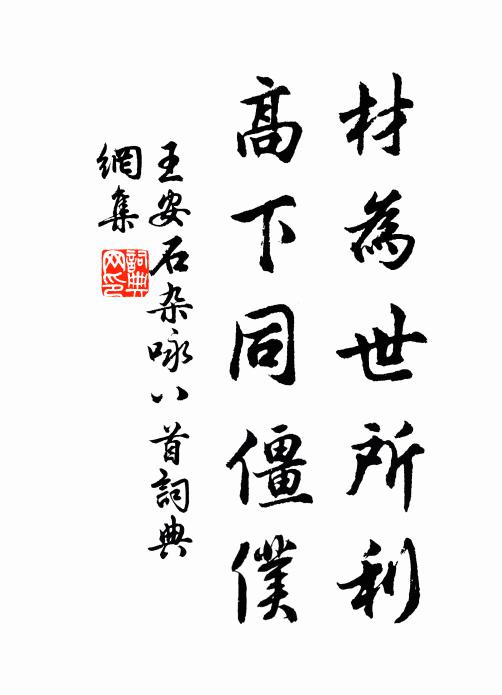 材為世所利
高下同僵僕
王安石杂咏八首詞典
網集
詞典网印